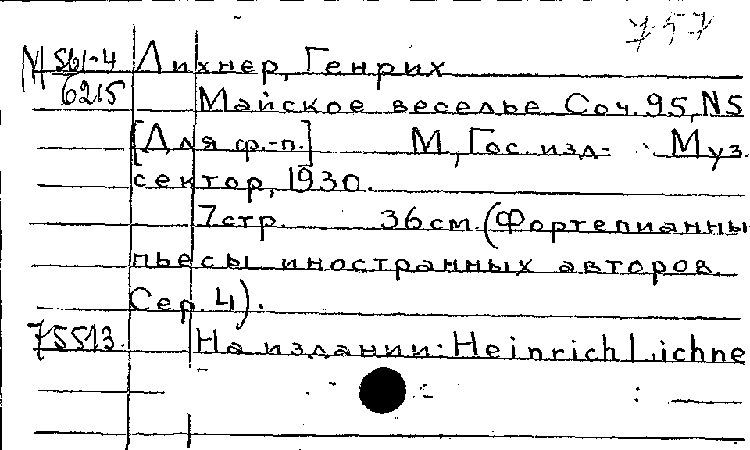 757
М 561-4 Лихнер, Генрих
6215 Майское веселье Соч. 95, N5
[Для ф.-п.] М, Гос. изд- Муз.
сектор, 1930.
7 стр. 36 см. (Фортепианны
пьесы иностранных авторов
Сер. 4).
75513. На издании: Heinrich Lichne